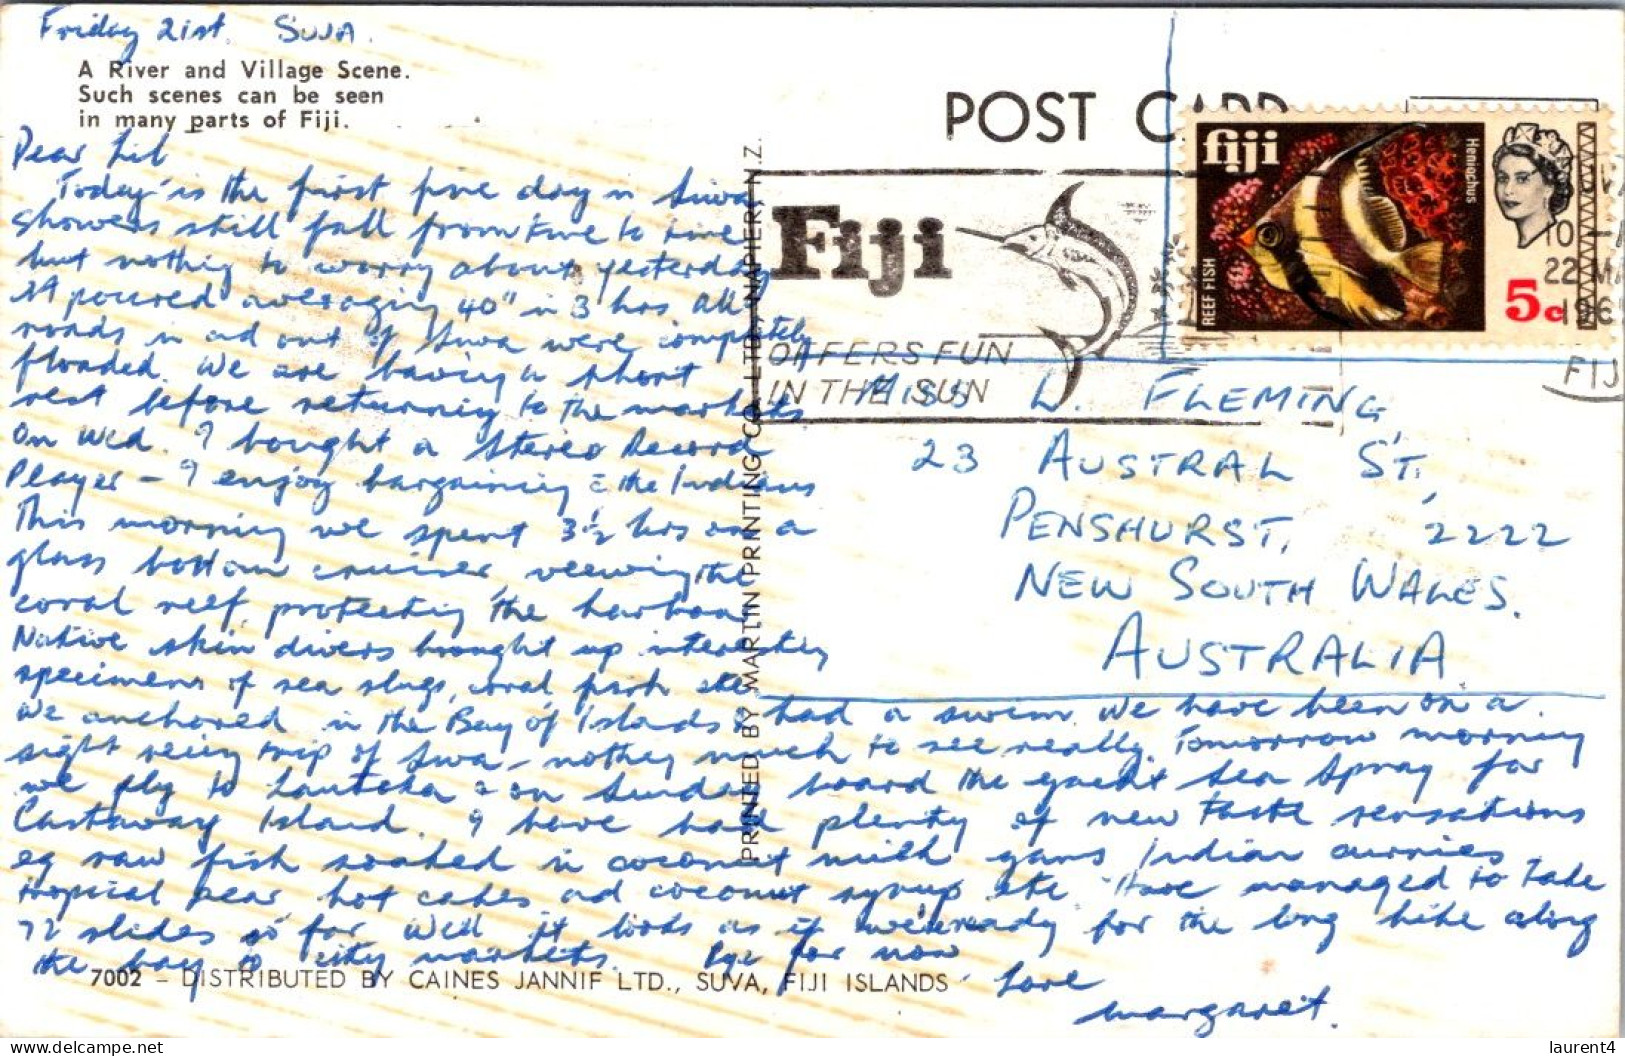 Friday 21st. SUVA.
A River and Village Scene.
Such scenes can be seen
in many parts of Fiji.
POST CARD
fiji
Heniochus
REEF FISH
5c
Fiji
OFFERS FUN
IN THE SUN
10
22 MA
196
FIJ
Dear Lil
Today is the first fine day in Suva
showers still fall from time to time
but nothing to worry about yesterday
it poured averaging 40" in 3 hrs All
roads in and out of Suva were completely
flooded. We are having a short
rest before returning to the markets
on Wed. I bought a Stereo Record
Player – I enjoy bargaining c the Indians
This morning we spent 3½ hrs on a
glass bottom cruiser, veewing the
coral reef, protecting the harbour
Native skin divers brought up interesting
specimens of sea slugs, coral, fish etc
We anchored in the Bay of Islands & had a swim. We have been on a
sight seeing trip of Suva – nothing much to see really. Tomorrow morning
we fly to Lautoka & on Sunday board the yacht Sea Spray for
Castaway Island. I have had plenty of new taste sensations
eg raw fish soaked in coconut milk yams Indian curries
tropical pear hot cakes and coconut syrup etc Have managed to take
72 slides so far Well it looks as if we're ready for the long hike along
the bay to city markets. Bye for now
Love
Margaret.
MISS L. FLEMING
23 AUSTRAL ST,
PENSHURST, 2222
NEW SOUTH WALES.
AUSTRALIA
PRINTED BY MARTIN PRINTING CO. LTD., NAPIER, N.Z.
7002 – DISTRIBUTED BY CAINES JANNIF LTD., SUVA, FIJI ISLANDS
delcampe.net
laurent4